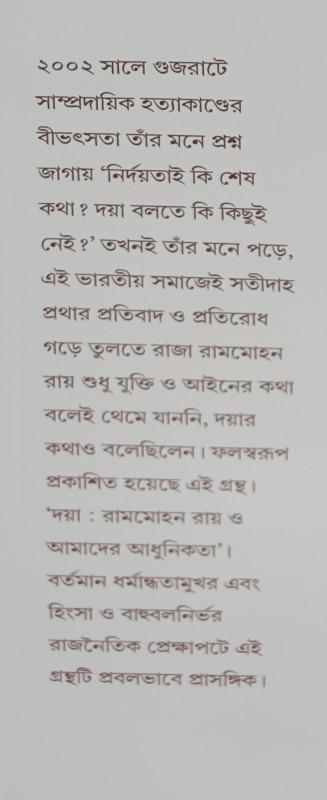 ২০০২ সালে গুজরাটে
সাম্প্রদায়িক হত্যাকাণ্ডের
বীভৎসতা তাঁর মনে প্রশ্ন
জাগায় ‘নির্দয়তাই কি শেষ
কথা? দয়া বলতে কি কিছুই
নেই?’ তখনই তাঁর মনে পড়ে,
এই ভারতীয় সমাজেই সতীদাহ
প্রথার প্রতিবাদ ও প্রতিরোধ
গড়ে তুলতে রাজা রামমোহন
রায় শুধু যুক্তি ও আইনের কথা
বলেই থেমে যাননি, দয়ার
কথাও বলেছিলেন। ফলস্বরূপ
প্রকাশিত হয়েছে এই গ্রন্থ।
‘দয়া : রামমোহন রায় ও
আমাদের আধুনিকতা’।
বর্তমান ধর্মান্ধতামুখর এবং
হিংসা ও বাহুবলনির্ভর
রাজনৈতিক প্রেক্ষাপটে এই
গ্রন্থটি প্রবলভাবে প্রাসঙ্গিক।